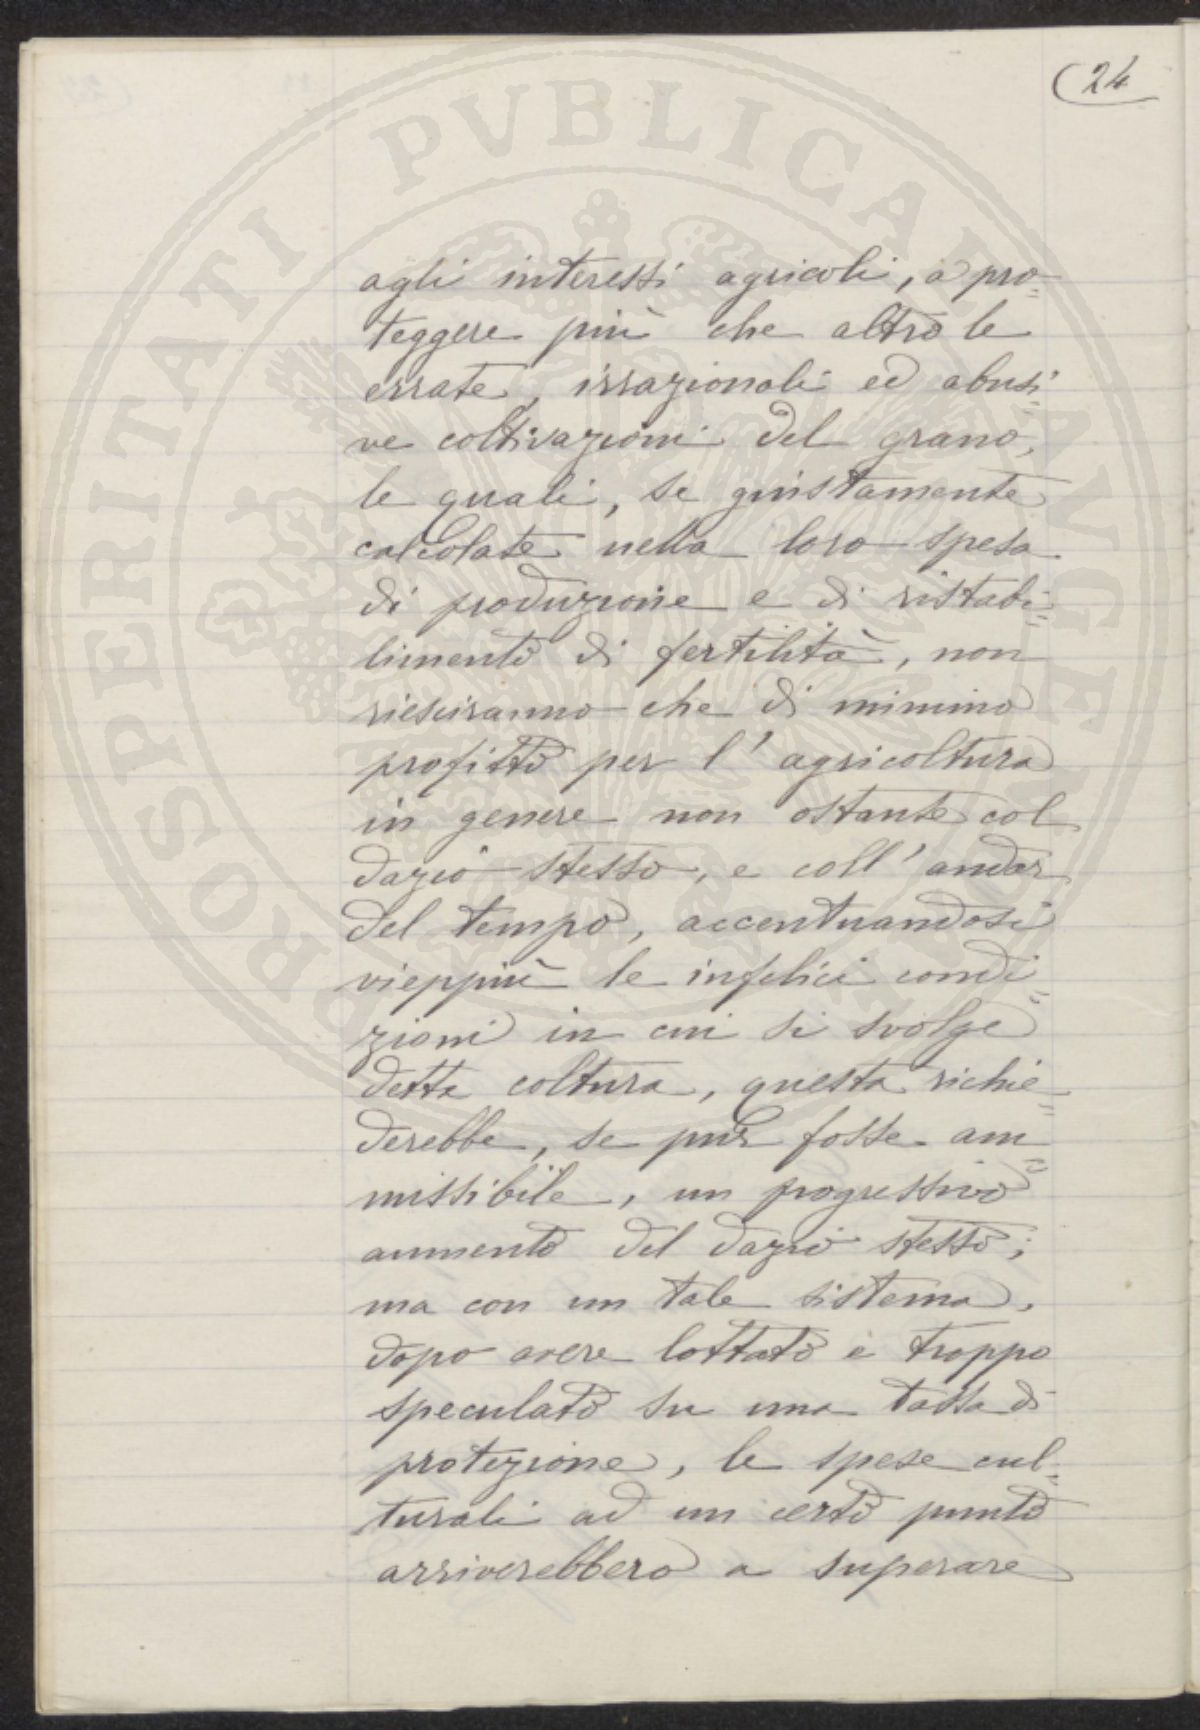 24
agli interessi agricoli, a pro=
teggere più che altro le
errate, irrazionali ed abusi=
ve coltivazioni del grano,
le quali, se giustamente
calcolate nella loro spesa
di produzione e di ristabi=
limento di fertilità, non
riesciranno che di minimo
profitto per l'agricoltura
in genere non ostante col
dazio stesso, e coll'andar
del tempo, accentuandosi
vieppiù le infelici condi=
zioni in cui si svolge
detta coltura, questa richie=
derebbe, se pur fosse am=
missibile, un progressivo
aumento del dazio stesso;
ma con un tale sistema,
dopo avere lottato e troppo
speculato su una tassa di
protezione, le spese cul=
turali ad un certo punto
arriverebbero a superare
PROSPERITATI PVBLICAE AVGENDAE